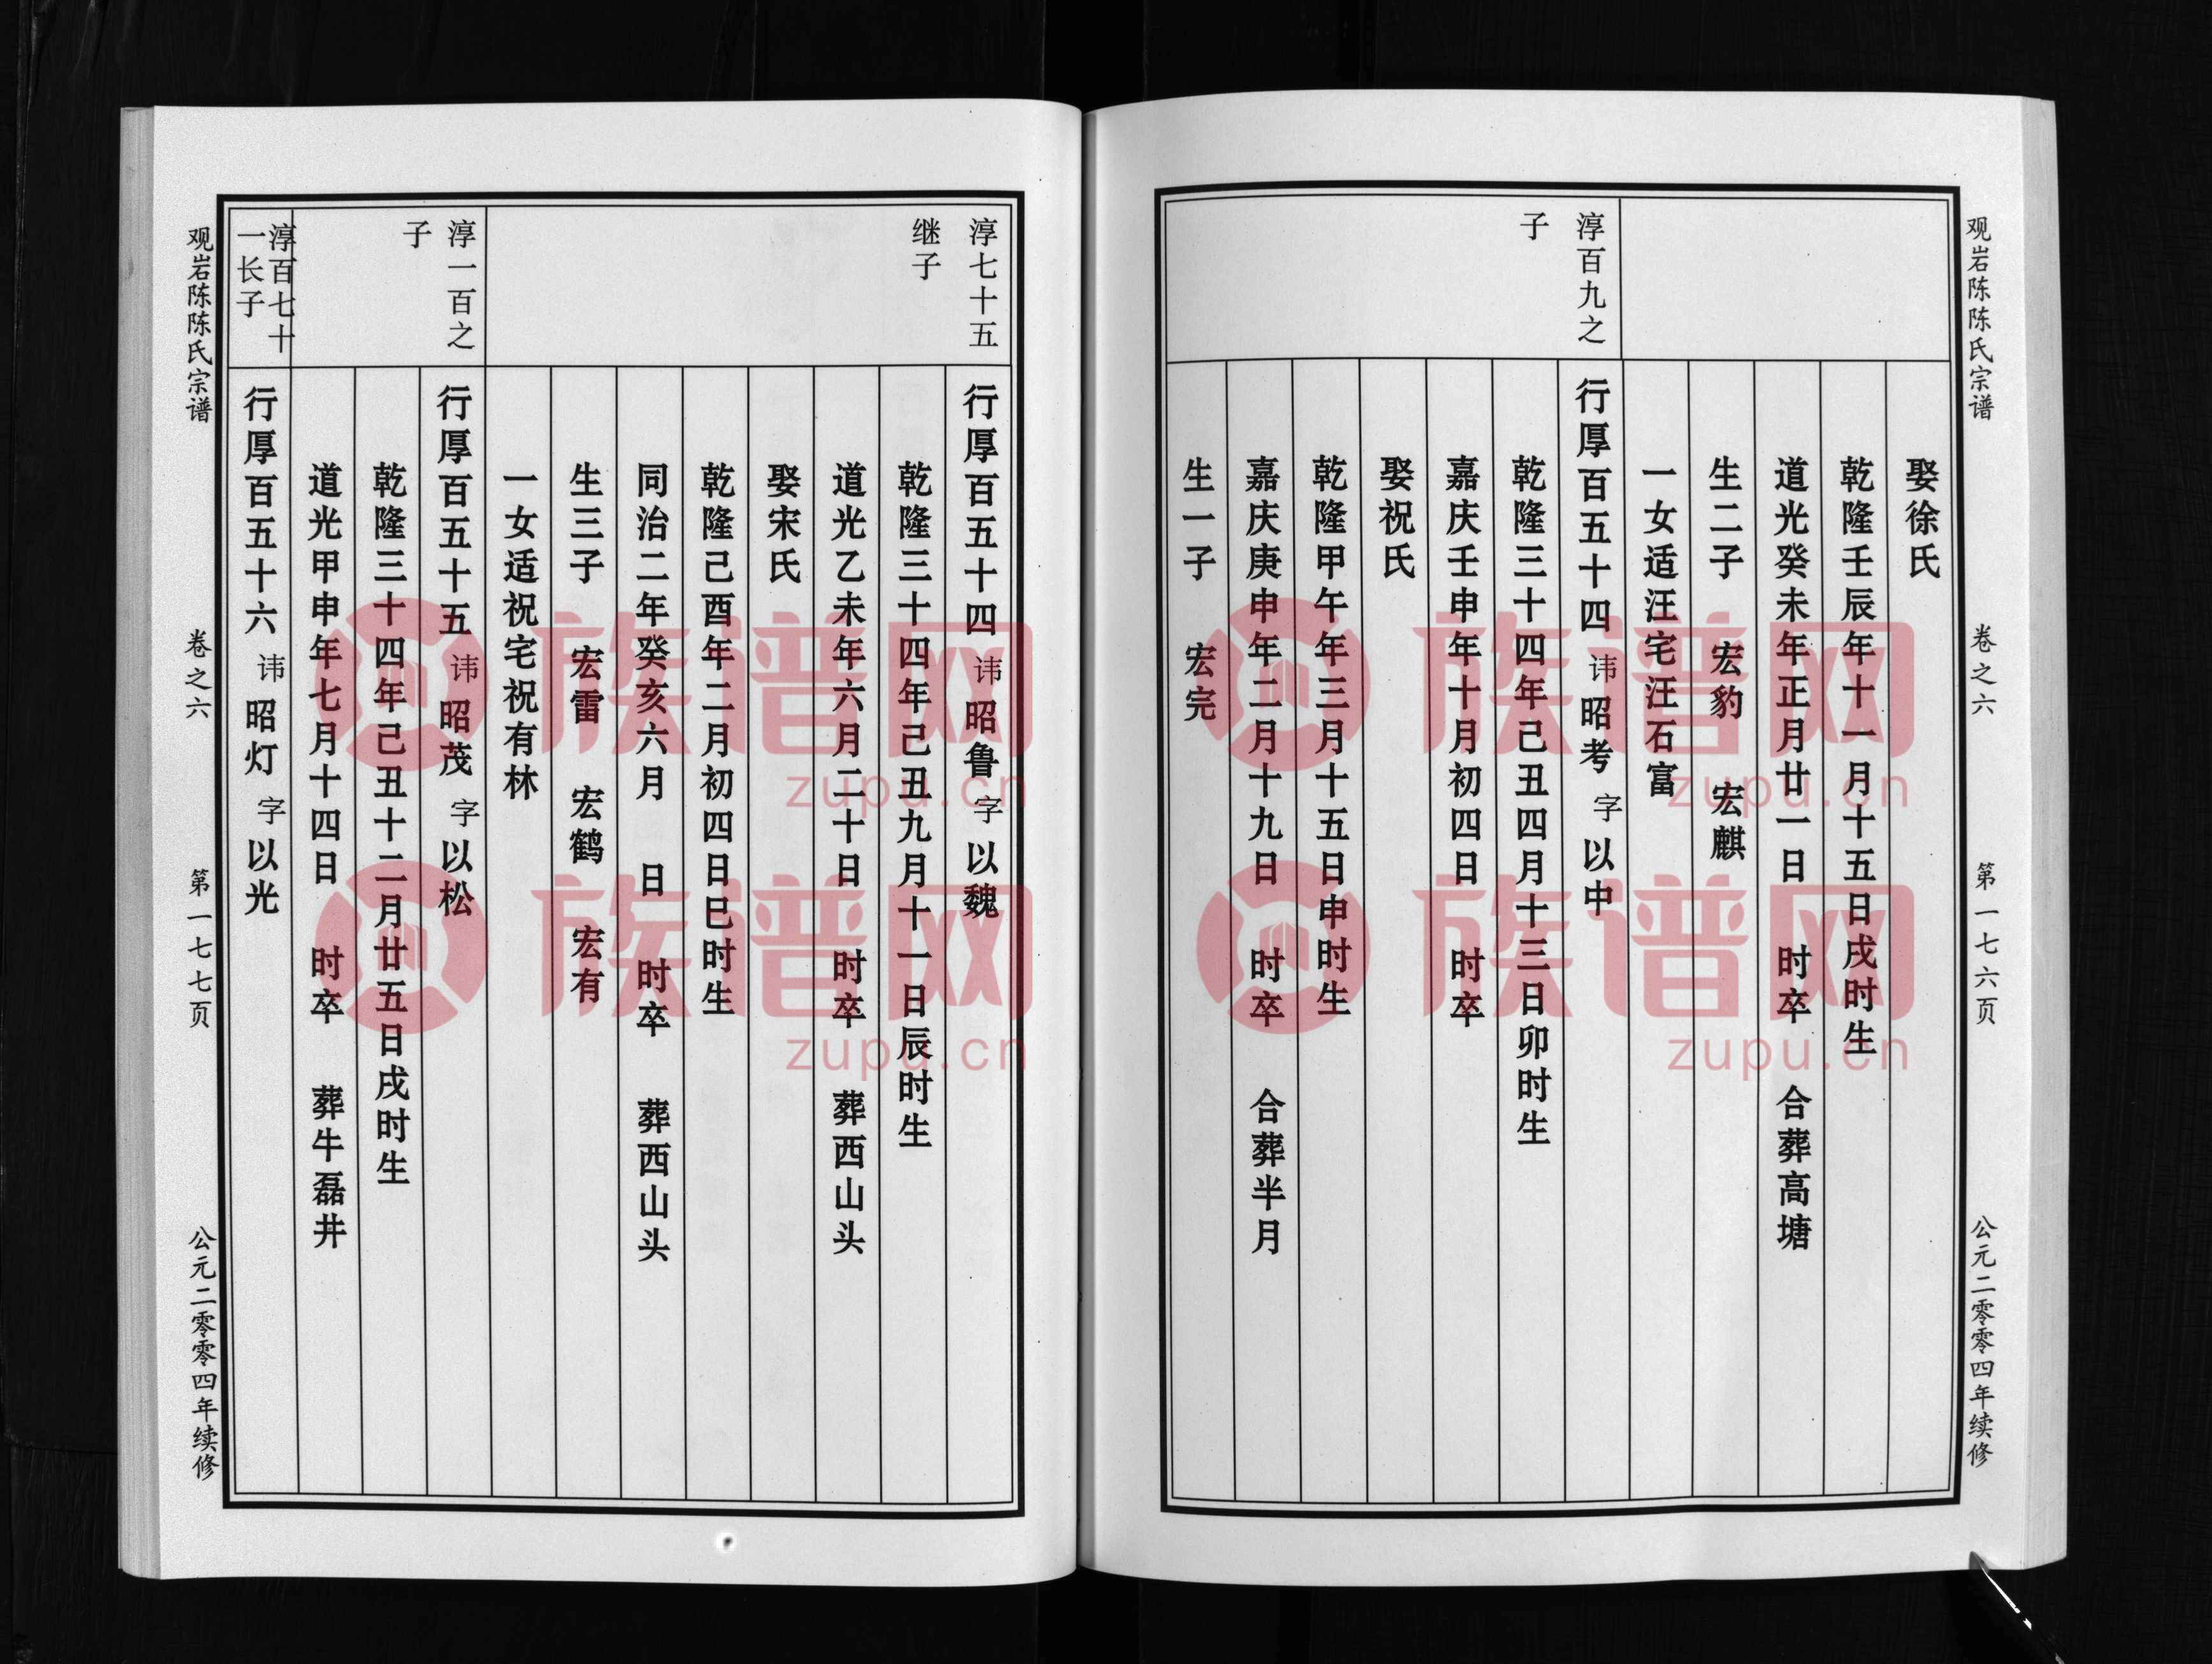 观岩陈陈氏宗谱
卷之六
第一七六页
公元二零零四年续修
娶徐氏
乾隆壬辰年十一月十五日戌时生
道光癸未年正月廿一日 时卒 合葬高塘
生二子 宏豹 宏麒
一女适汪宅汪石富
淳百九之
子
行厚百五十四 讳昭考 字以中
乾隆三十四年己丑四月十三日卯时生
嘉庆壬申年十月初四日 时卒
娶祝氏
乾隆甲午年三月十五日申时生
嘉庆庚申年二月十九日 时卒 合葬半月
生一子 宏完
淳七十五
继子
行厚百五十四 讳昭鲁 字以魏
乾隆三十四年己丑九月十一日辰时生
道光乙未年六月二十日 时卒 葬西山头
娶宋氏
乾隆己酉年二月初四日巳时生
同治二年癸亥六月 日 时卒 葬西山头
生三子 宏雷 宏鹤 宏有
一女适祝宅祝有林
淳一百之
子
行厚百五十五 讳昭茂 字以松
乾隆三十四年己丑十二月廿五日戌时生
道光甲申年七月十四日 时卒 葬牛磊井
淳百七十
一长子
行厚百五十六 讳昭灯 字以光
观岩陈陈氏宗谱
卷之六
第一七七页
公元二零零四年续修
族谱网
zupu.cn
族谱网
zupu.cn
族谱网
zupu.cn
族谱网
zupu.cn